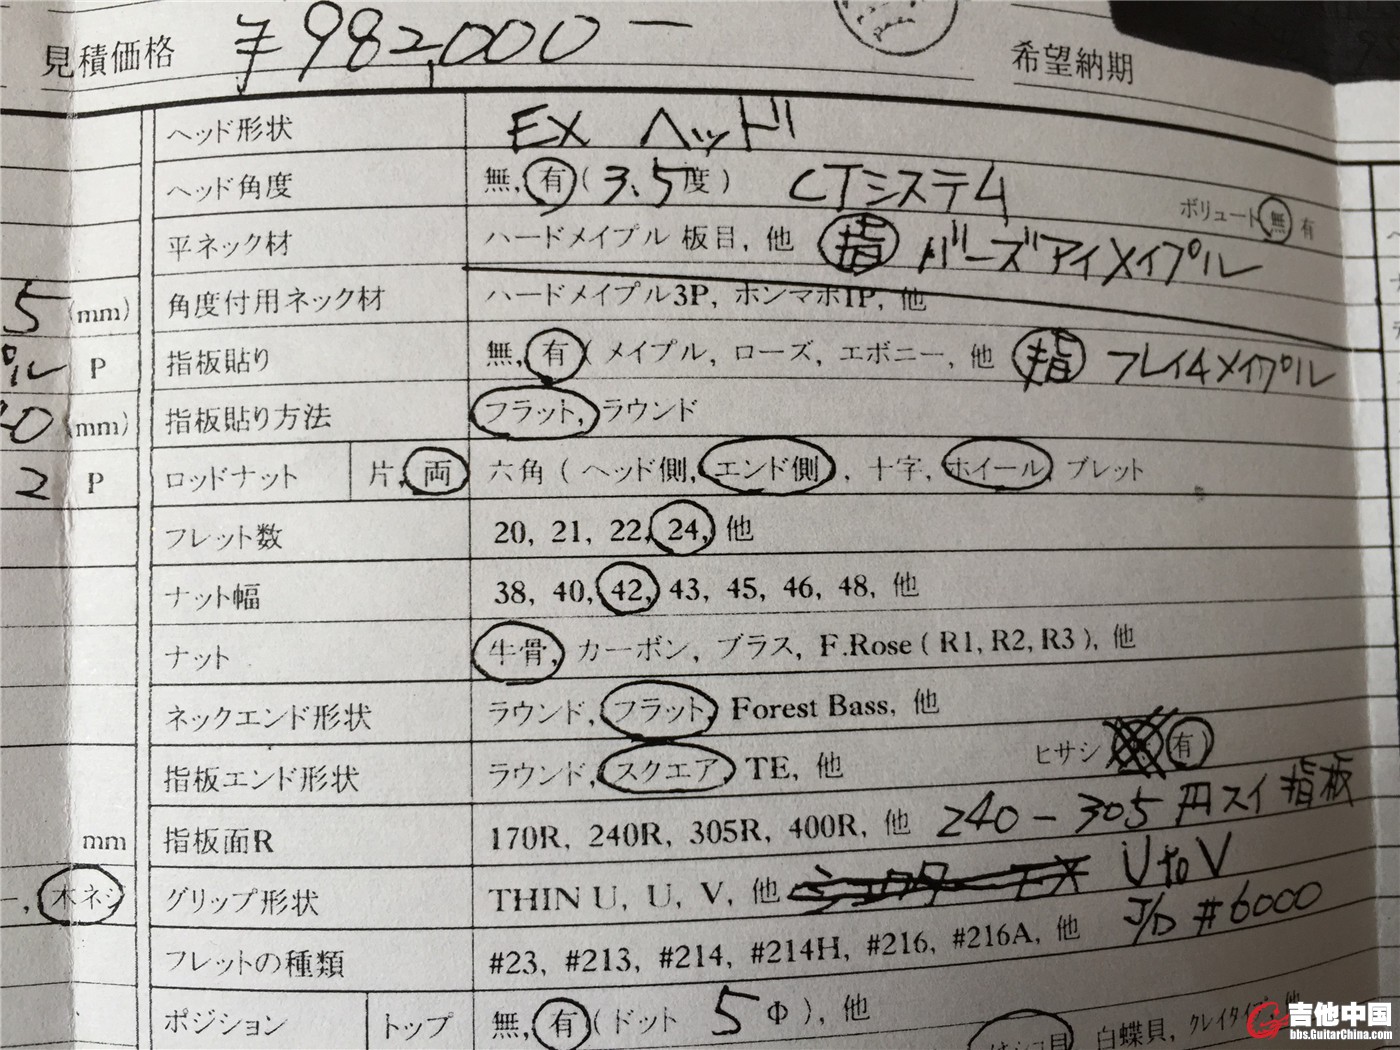 見積価格 ¥982,000—
希望納期
ヘッド形状 EX ヘッド
ヘッド角度 無, 有 ( 3.5 度 ) CTシステム
ボリュート 無 有
平ネック材 ハードメイプル 板目, 他 指 バーズアイメイプル
5 (mm) 角度付用ネック材 ハードメイプル3P, ホンマホ1P, 他
プル P 指板貼り 無, 有 ( メイプル, ローズ, エボニー, 他 指 フレイムメイプル
0 (mm) 指板貼り方法 フラット, ラウンド
2 P ロッドナット 片, 両 六角 ( ヘッド側, エンド側 , 十字, ホイール, ブレット
フレット数 20, 21, 22, 24, 他
ナット幅 38, 40, 42, 43, 45, 46, 48, 他
ナット 牛骨, カーボン, ブラス, F.Rose ( R1, R2, R3 ), 他
ネックエンド形状 ラウンド, フラット, Forest Bass, 他
指板エンド形状 ラウンド, スクエア, TE, 他 ヒサシ 有 )
mm 指板面R 170R, 240R, 305R, 400R, 他 240 - 305 円スイ指板
木ネジ グリップ形状 THIN U, U, V, 他 U to V
フレットの種類 #23, #213, #214, #214H, #216, #216A, 他 J/D #6000
ポジション トップ 無, 有 ( ドット 5 Φ ), 他
白蝶貝, クレイタイプ, 他
吉他中国
bbs.GuitarChina.com